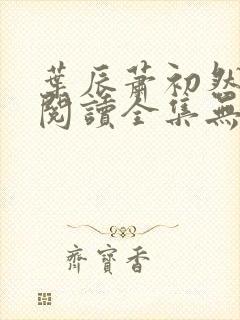 葉辰蕭初然
閱讀全集無
齊寶香